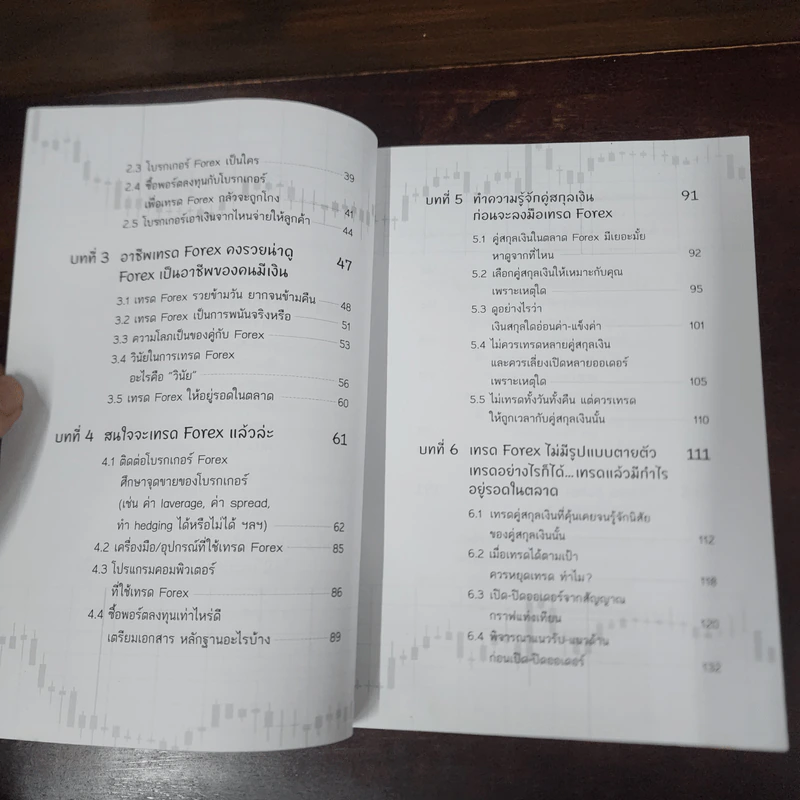 2.3 โบรกเกอร์ Forex เป็นใคร 39
2.4 ซื้อพอร์ตลงทุนกับโบรกเกอร์
เพื่อเทรด Forex กลัวจะถูกโกง 41
2.5 โบรกเกอร์เอาเงินจากไหนจ่ายให้ลูกค้า 44
บทที่ 3 อาชีพเทรด Forex คงรวยน่าดู 47
Forex เป็นอาชีพของคนมีเงิน
3.1 เทรด Forex รวยข้ามวัน ยากจนข้ามคืน 48
3.2 เทรด Forex เป็นการพนันจริงหรือ 51
3.3 ความโลภเป็นของคู่กับ Forex 53
3.4 วินัยในการเทรด Forex
อะไรคือ “วินัย” 56
3.5 เทรด Forex ให้อยู่รอดในตลาด 60
บทที่ 4 สนใจจะเทรด Forex แล้วล่ะ 61
4.1 ติดต่อโบรกเกอร์ Forex
ศึกษาจุดขายของโบรกเกอร์
(เช่น ค่า laverage, ค่า spread,
ทำ hedging ได้หรือไม่ได้ ฯลฯ) 62
4.2 เครื่องมือ/อุปกรณ์ที่ใช้เทรด Forex 85
4.3 โปรแกรมคอมพิวเตอร์
ที่ใช้เทรด Forex 86
4.4 ซื้อพอร์ตลงทุนเท่าไหร่ดี
เตรียมเอกสาร หลักฐานอะไรบ้าง 89
บทที่ 5 ทำความรู้จักคู่สกุลเงิน 91
ก่อนจะลงมือเทรด Forex
5.1 คู่สกุลเงินในตลาด Forex มีเยอะมั้ย
หาดูจากที่ไหน 92
5.2 เลือกคู่สกุลเงินให้เหมาะกับคุณ
เพราะเหตุใด 95
5.3 ดูอย่างไรว่า
เงินสกุลใดอ่อนค่า-แข็งค่า 101
5.4 ไม่ควรเทรดหลายคู่สกุลเงิน
และควรเลี่ยงเปิดหลายออเดอร์
เพราะเหตุใด 105
5.5 ไม่เทรดทั้งวันทั้งคืน แต่ควรเทรด
ให้ถูกเวลากับคู่สกุลเงินนั้น 110
บทที่ 6 เทรด Forex ไม่มีรูปแบบตายตัว 111
เทรดอย่างไรก็ได้...เทรดแล้วมีกำไร
อยู่รอดในตลาด
6.1 เทรดคู่สกุลเงินที่คุ้นเคยจนรู้จักนิสัย
ของคู่สกุลเงินนั้น 112
6.2 เมื่อเทรดได้ตามเป้า
ควรหยุดเทรด ทำไม? 118
6.3 เปิด-ปิดออเดอร์จากสัญญาณ
กราฟแท่งเทียน 120
6.4 พิจารณาแนวรับ-แนวต้าน
ก่อนเปิด-ปิดออเดอร์ 132